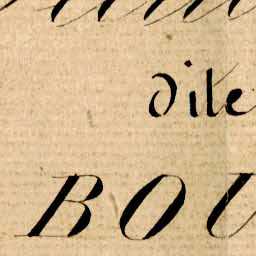 dite
BOU